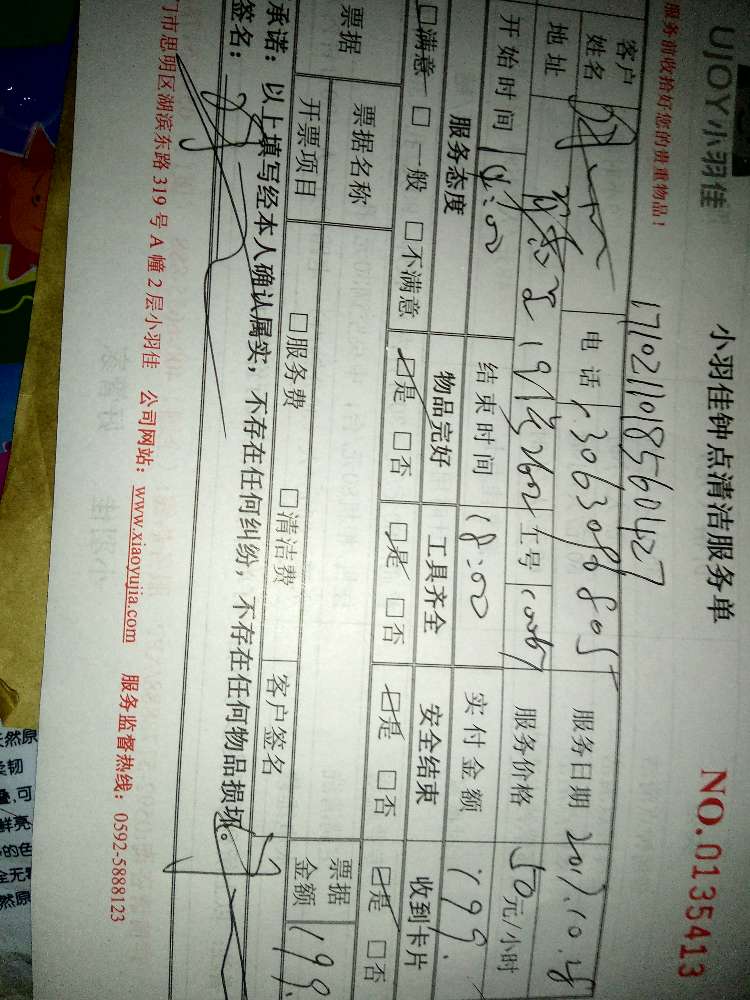 UJOY小羽佳
小羽佳钟点清洁服务单
NO.0135413
服务前收拾好您的贵重物品！
17102110185560427
客户姓名 电话 13063098805 服务日期 2017.10.28
地址 工号 服务价格 50元/小时
开始时间 14:00 结束时间 18:00 实付金额 199.
服务态度 物品完好 工具齐全 安全结束 收到卡片
☑满意 □一般 □不满意 ☑是 □否 ☑是 □否 ☑是 □否 ☑是 □否
票据 票据名称 票据金额 199.
开票项目 □服务费 □清洁费 客户签名
承诺：以上填写经本人确认属实，不存在任何纠纷，不存在任何物品损坏。
签名：
门市思明区湖滨东路 319 号 A 幢 2 层小羽佳 公司网站：www.xiaoyujia.com 服务监督热线：0592-5888123
然原
韧
叠,可
鲜亮
的色
全无
然原